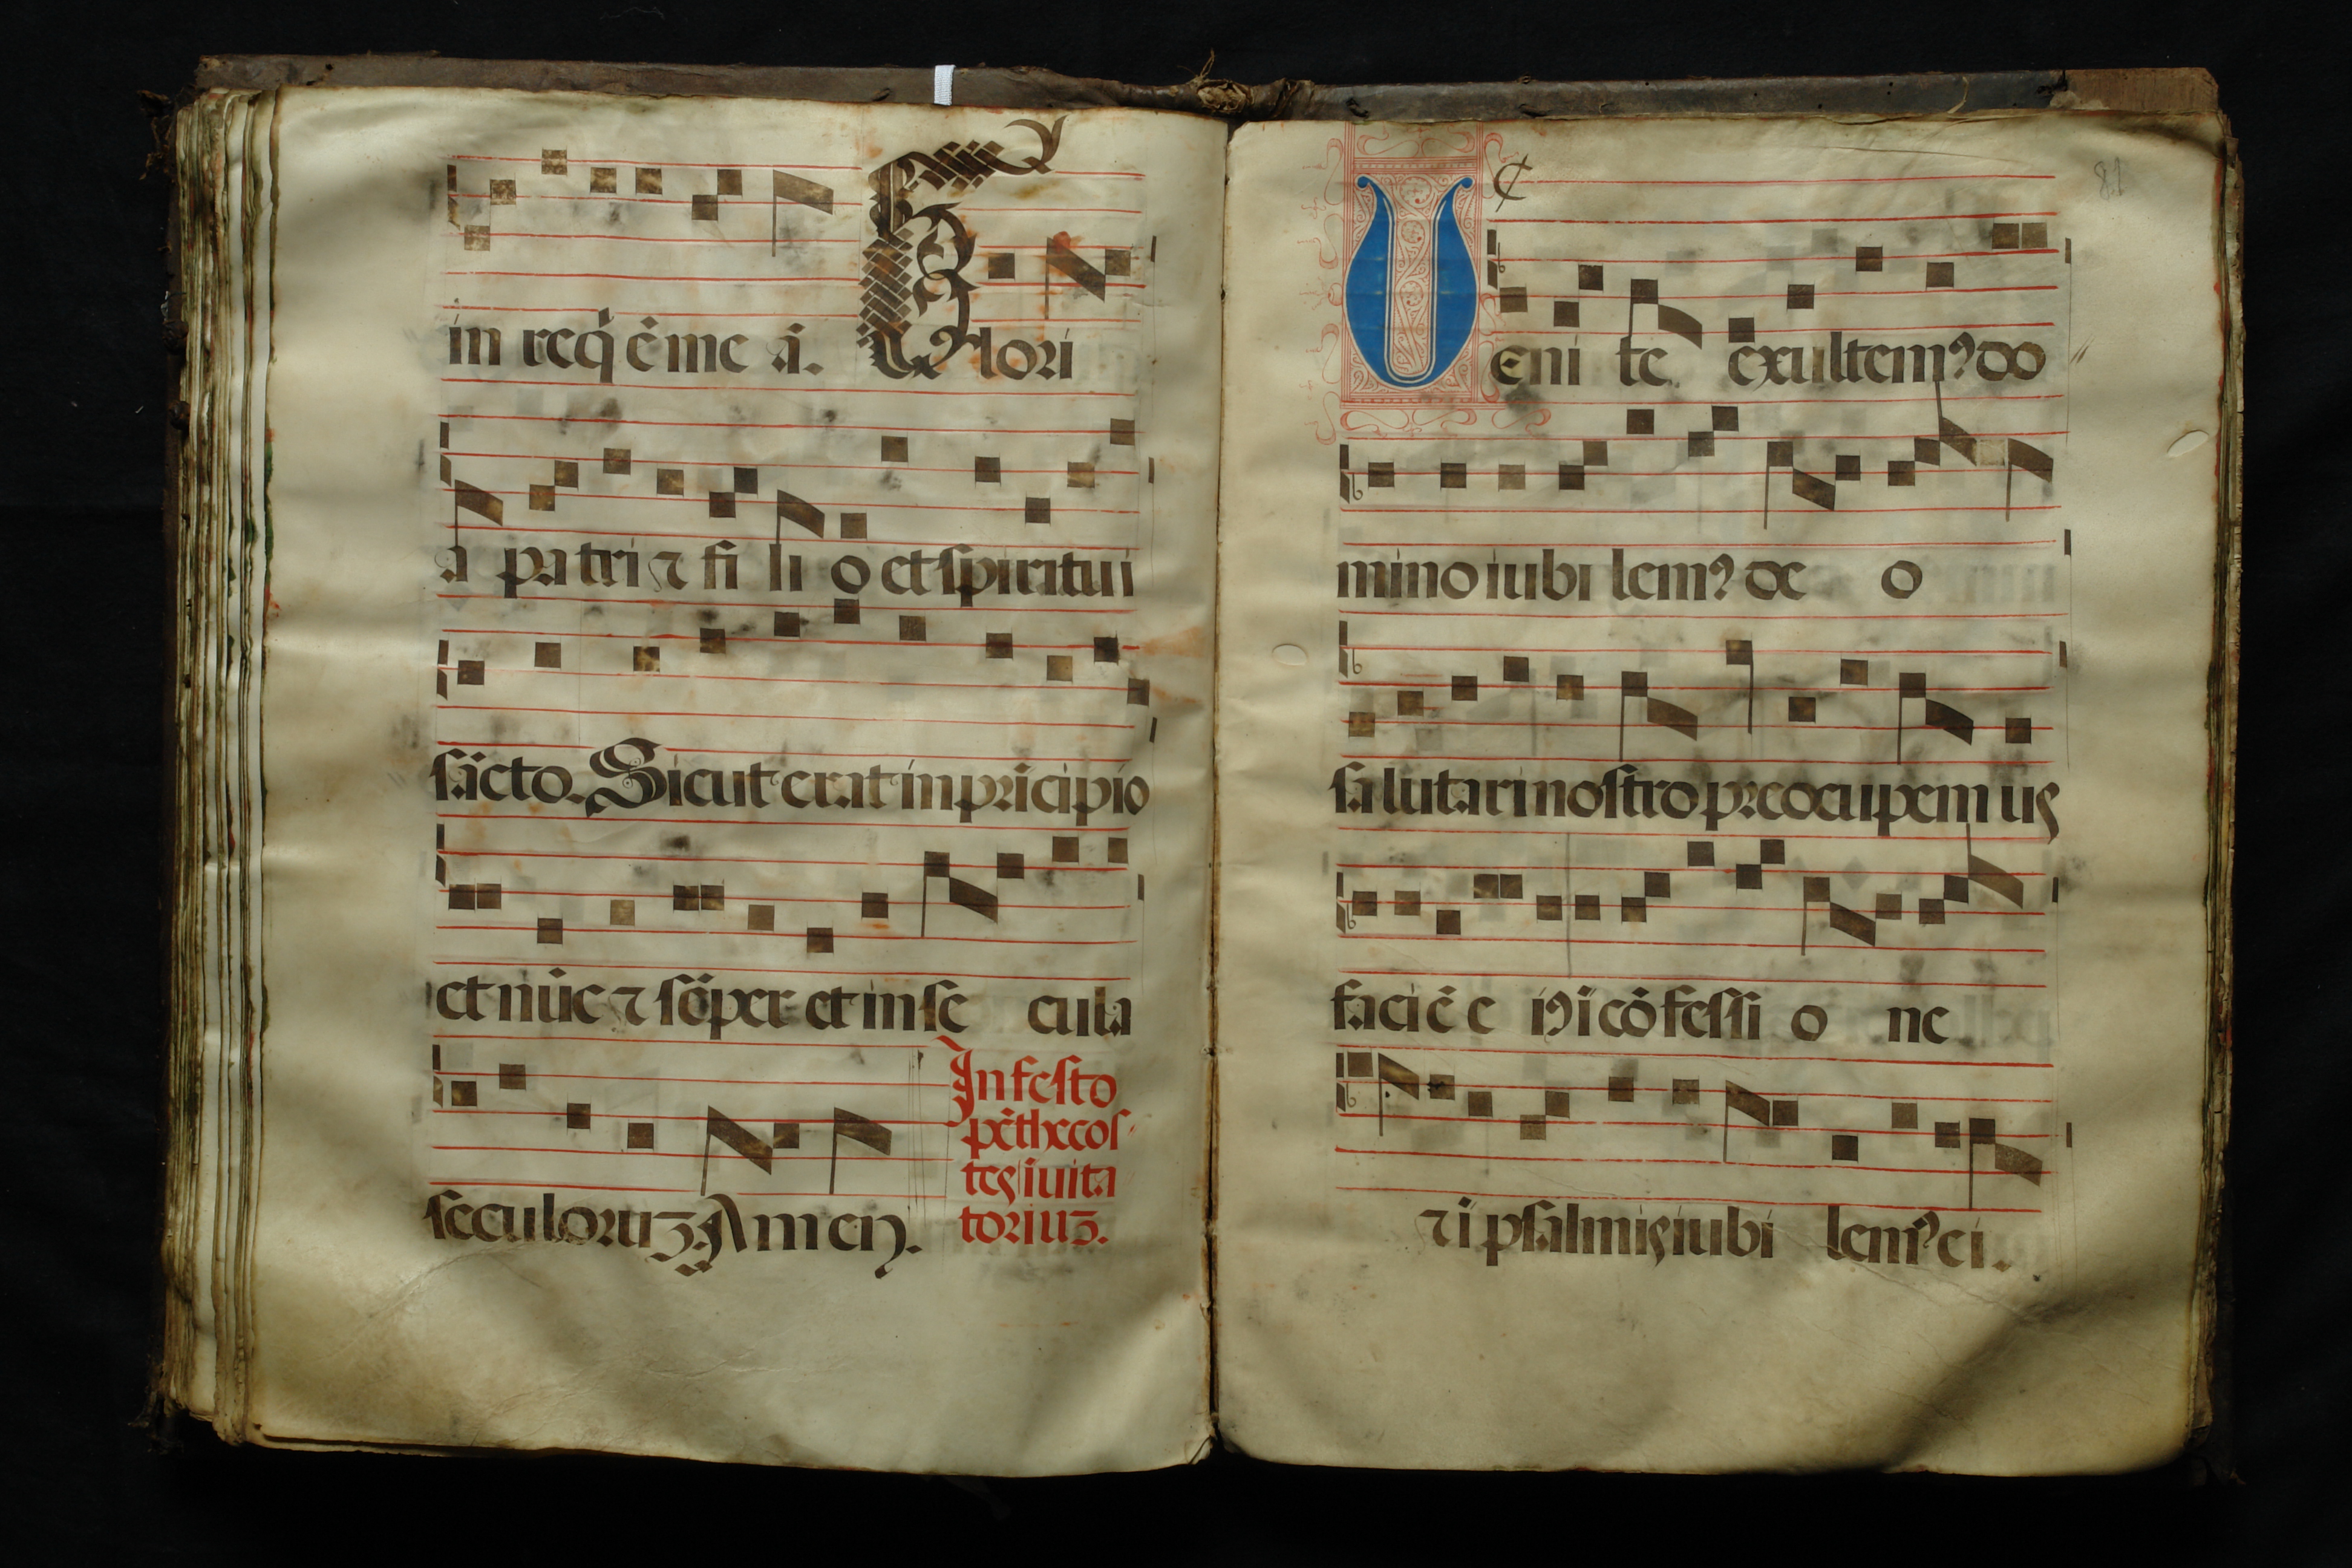 in req̄ ē me ā. Glori
a patri ⁊ fi li o et spiritui
sācto. Sicut erat in prīcipio
et nūc ⁊ sēper et in se cula
seculoruꝫ. Amen.
In festo
pēthecos
tes īuita
toriuꝫ.
81
Ueni te exultemꝰ do
mino iubi lemꝰ de o
salutari nostro preocupemus
faciē eiꝰ ī cōfessi o ne
⁊ ī psalmis iubi lemꝰ ei.